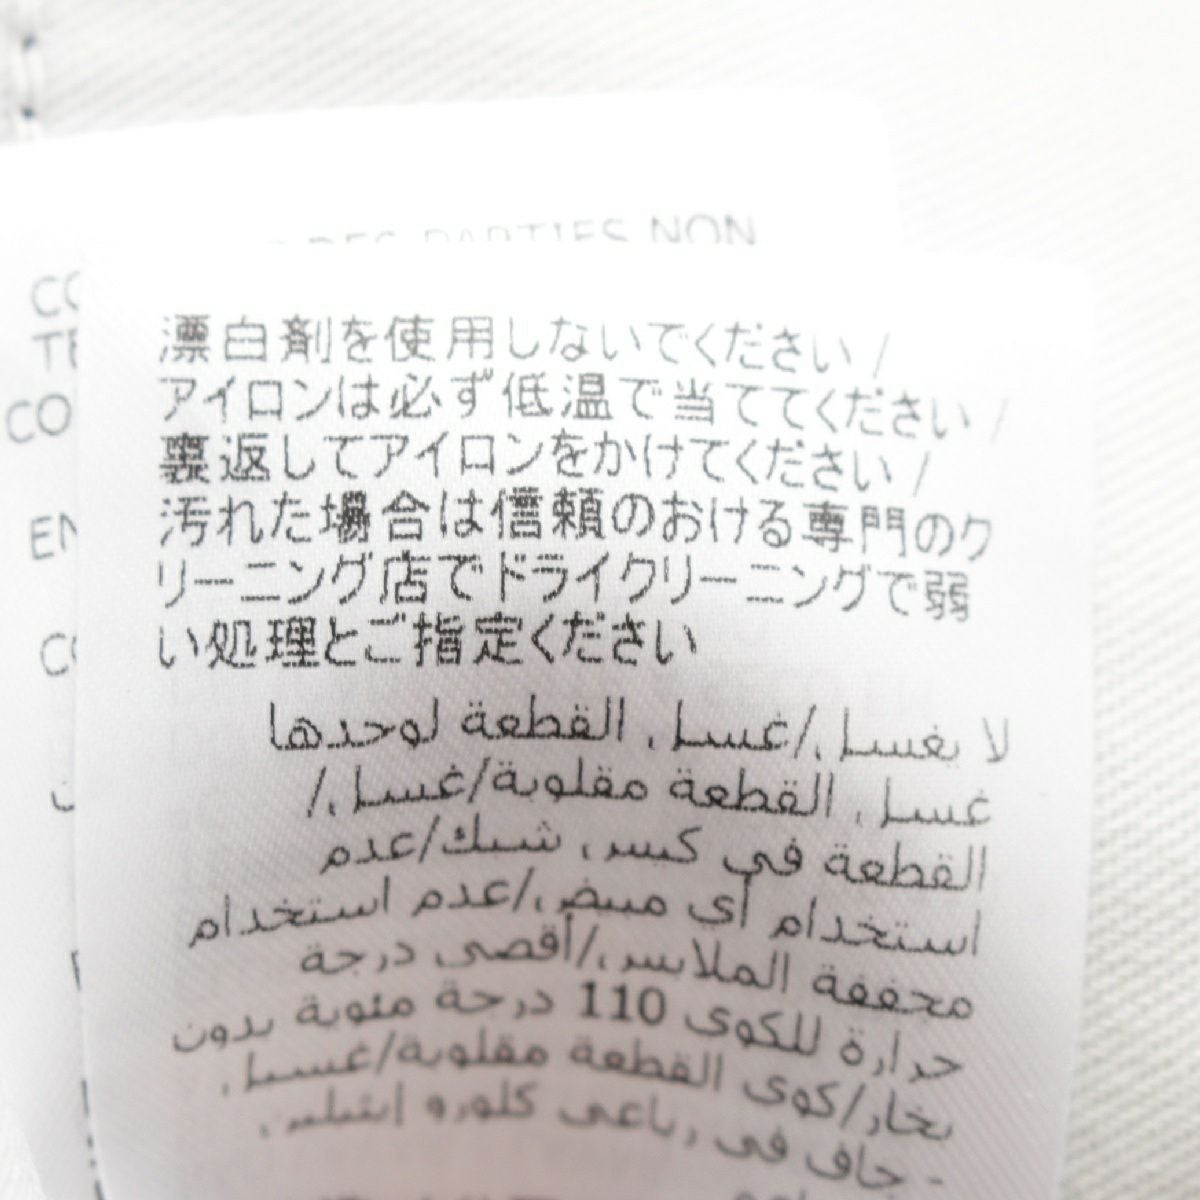 DES PARTIES NON
漂白剤を使用しないでください /
アイロンは必ず低温で当ててください /
裏返してアイロンをかけてください /
汚れた場合は信頼のおける専門のク
リーニング店でドライクリーニングで弱
い処理とご指定ください
لا يغسل/غسل القطعة لوحدها
غسل القطعة مقلوبة/غسل/
القطعة في كيس شبك/عدم
استخدام أي مبيض/عدم استخدام
مجففة الملابس/أقصى درجة
حرارة للكوي 110 درجة مئوية بدون
بخار/كوي القطعة مقلوبة/غسيل
جاف في رباعي كلورو إيثيلين